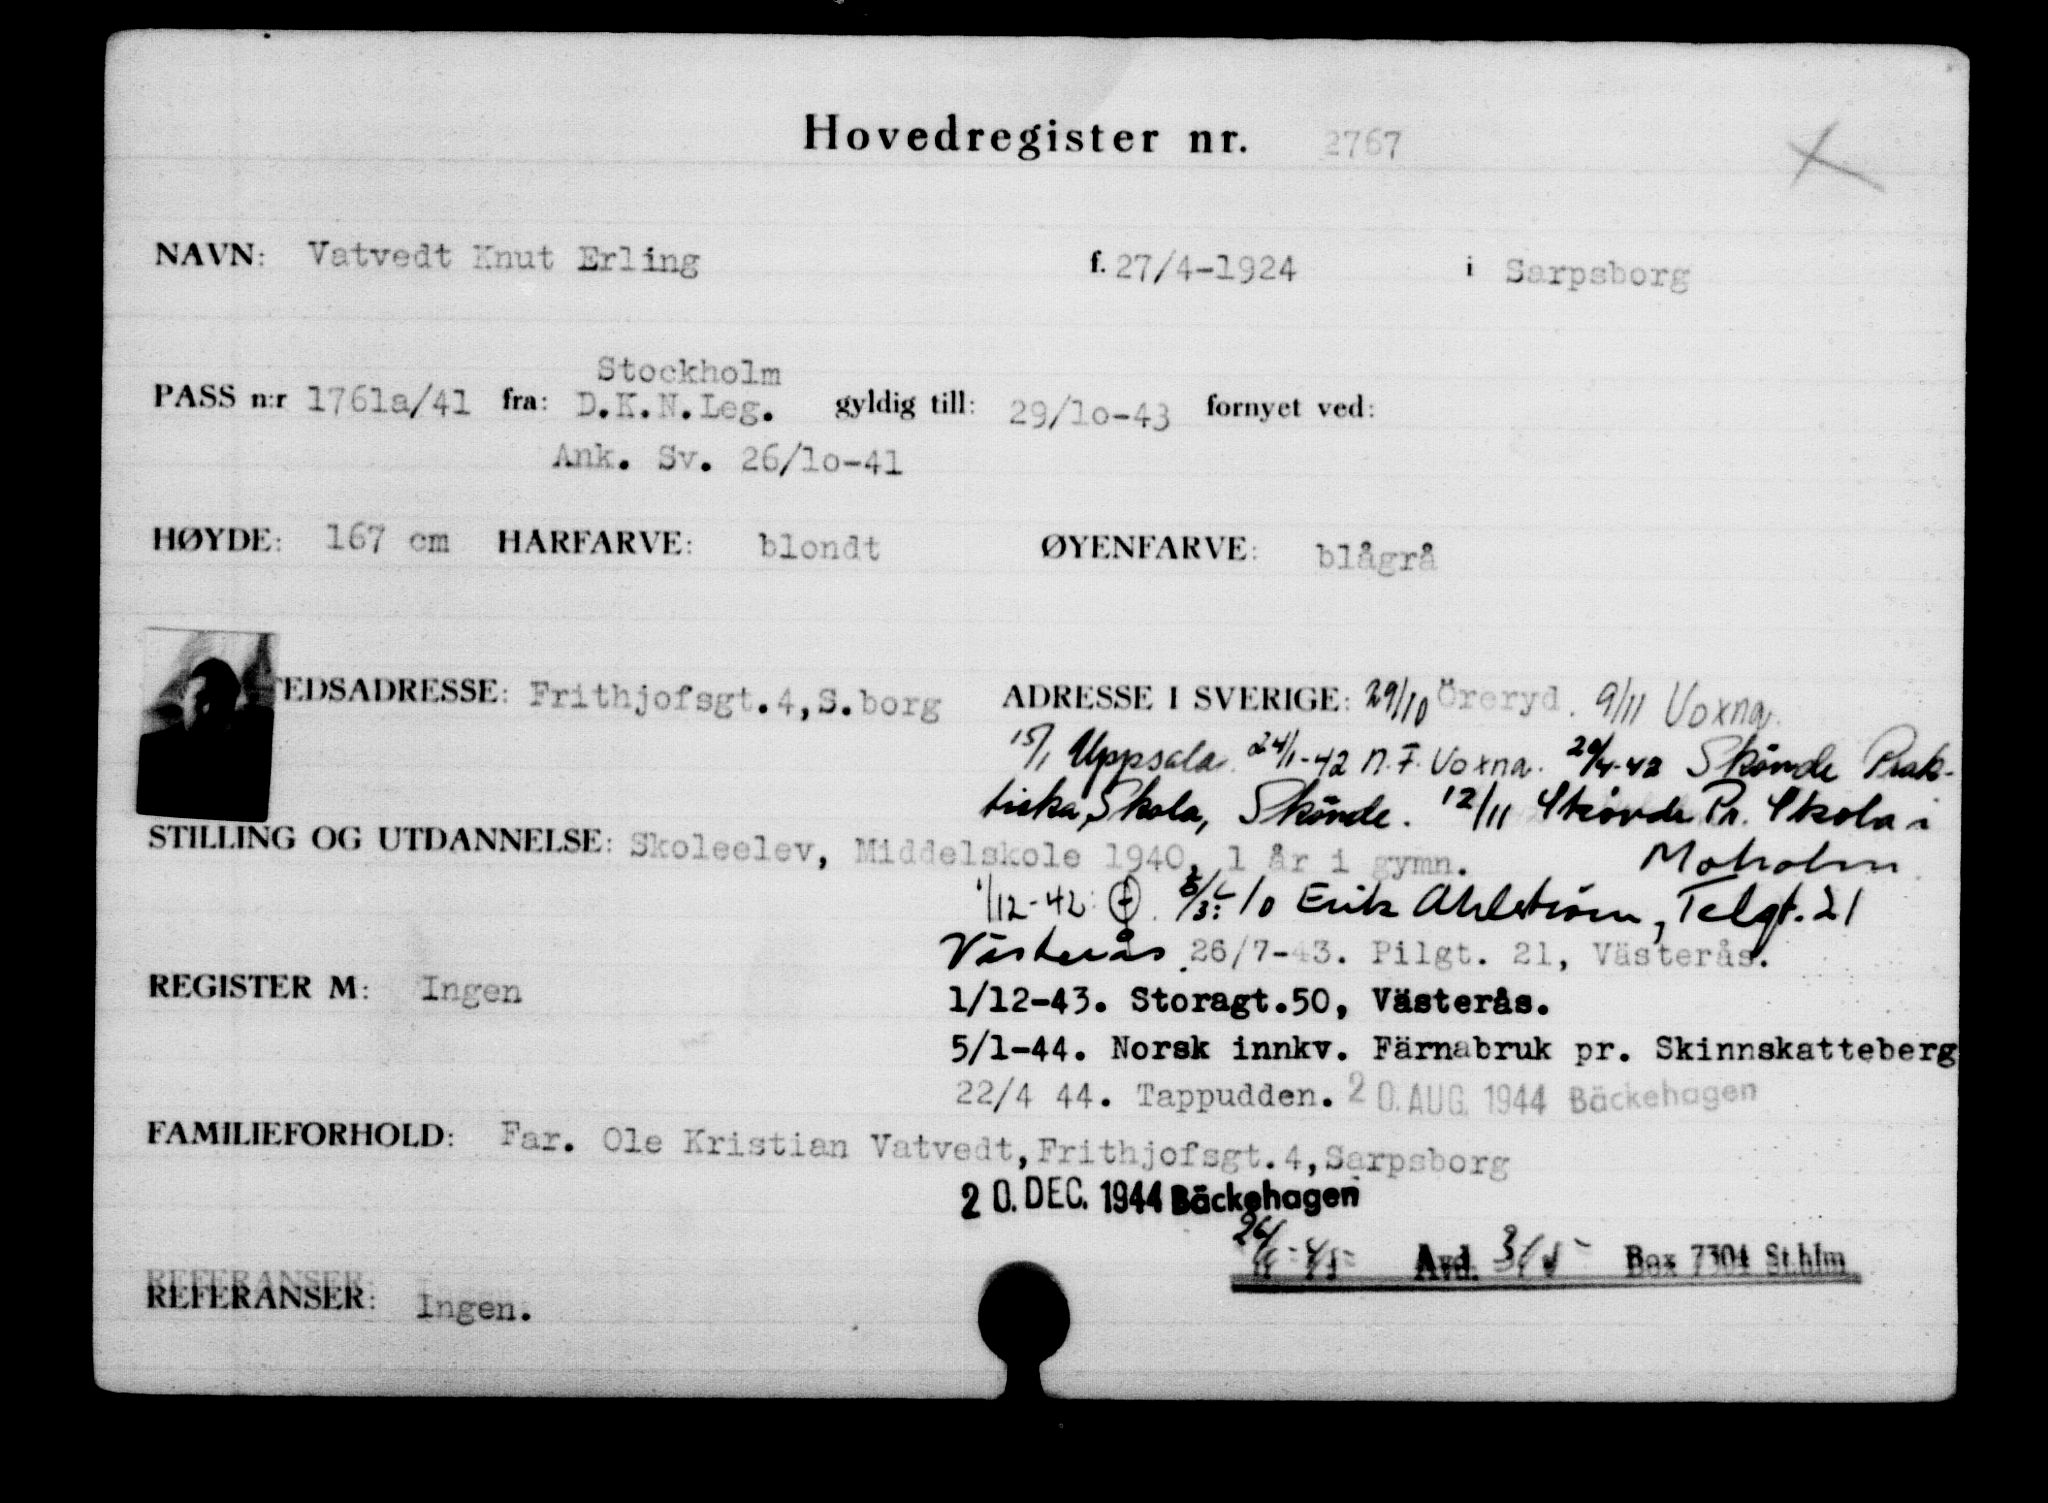 Hovedregister nr. 2767
NAVN: Vatvedt Knut Erling f. 27/4-1924 i Sarpsborg
Stockholm
PASS n:r 1761a/41 fra: D.K.N.Leg. gyldig till: 29/1o-43 fornyet ved:
Ank. Sv. 26/1o-41
HØYDE: 167 cm HARFARVE: blondt ØYENFARVE: blågrå
TEDSADRESSE: Frithjofsgt.4,S.borg ADRESSE I SVERIGE: 29/10 Öreryd. 9/11 Voxna.
15/1 Uppsala. 24/1-42 N.F. Voxna. 20/4-42 Skövde Prak-
tiska Skola, Skövde. 12/11 Skövde Pr. Skola i
STILLING OG UTDANNELSE: Skoleelev, Middelskole 1940, 1 år i gymn. Moholm
1/12-42: c/o Erik Ahlström, Telgt. 21
Västerås 26/7-43. Pilgt. 21, Västerås.
REGISTER M: Ingen
1/12-43. Storagt.50, Västerås.
5/1-44. Norsk innkv. Färnabruk pr. Skinnskatteberg
22/4 44. Tappudden. 20. AUG. 1944 Bäckehagen
FAMILIEFORHOLD: Far. Ole Kristian Vatvedt,Frithjofsgt.4,Sarpsborg
20. DEC. 1944 Bäckehagen
Avd. Box 7304 St.hlm
REFERANSER: Ingen.